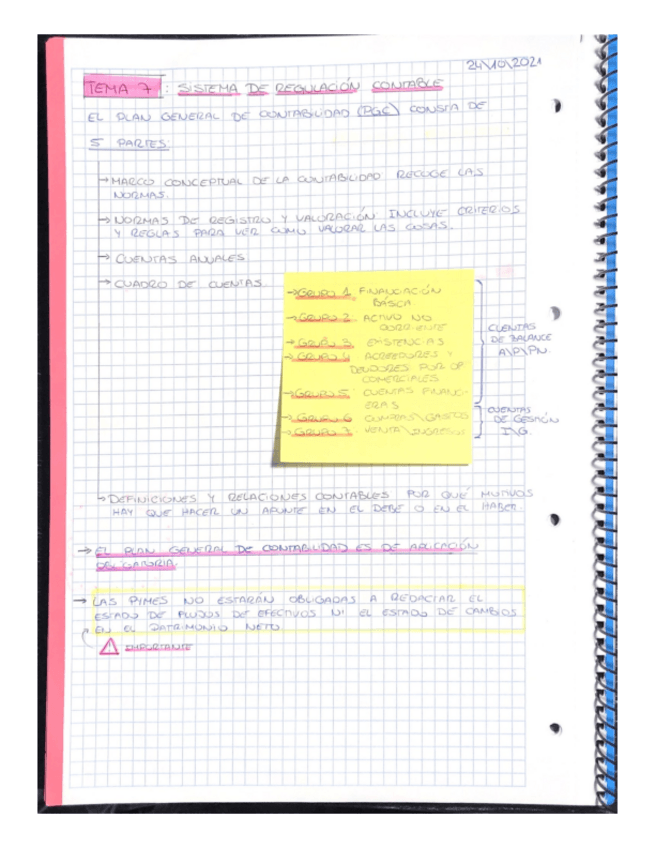 24\10\2021
TEMA 7: SISTEMA DE REGULACIÓN CONTABLE
EL PLAN GENERAL DE CONTABILIDAD (PGC) CONSTA DE
5 PARTES:
→ MARCO CONCEPTUAL DE LA CONTABILIDAD RECOGE LAS
NORMAS.
→ NORMAS DE REGISTRO Y VALORACIÓN INCLUYE CRITERIOS
Y REGLAS PARA VER COMO VALORAR LAS COSAS.
→ CUENTAS ANUALES
→ CUADRO DE CUENTAS.
→ GRUPO 1. FINANCIACIÓN
BÁSICA
→ GRUPO 2. ACTIVO NO
CORRIENTE
→ GRUPO 3. EXISTENCIAS
→ GRUPO 4 ACREEDORES Y
DEUDORES POR OP.
COMERCIALES
→ GRUPO 5. CUENTAS FINANC-
IERAS
→ GRUPO 6 COMPRAS\GASTOS
→ GRUPO 7. VENTA\INGRESOS
CUENTAS
DE BALANCE
A\P\PN.
CUENTAS
DE GESTIÓN
I\G.
→ DEFINICIONES Y RELACIONES CONTABLES POR QUÉ MOTIVOS
HAY QUE HACER UN APUNTE EN EL DEBE O EN EL HABER
→ EL PLAN GENERAL DE CONTABILIDAD ES DE APLICACIÓN
OBLIGATORIA.
→ LAS PYMES NO ESTARÁN OBLIGADAS A REDACTAR EL
ESTADO DE FLUJOS DE EFECTIVOS NI EL ESTADO DE CAMBIOS
EN EL PATRIMONIO NETO
! IMPORTANTE